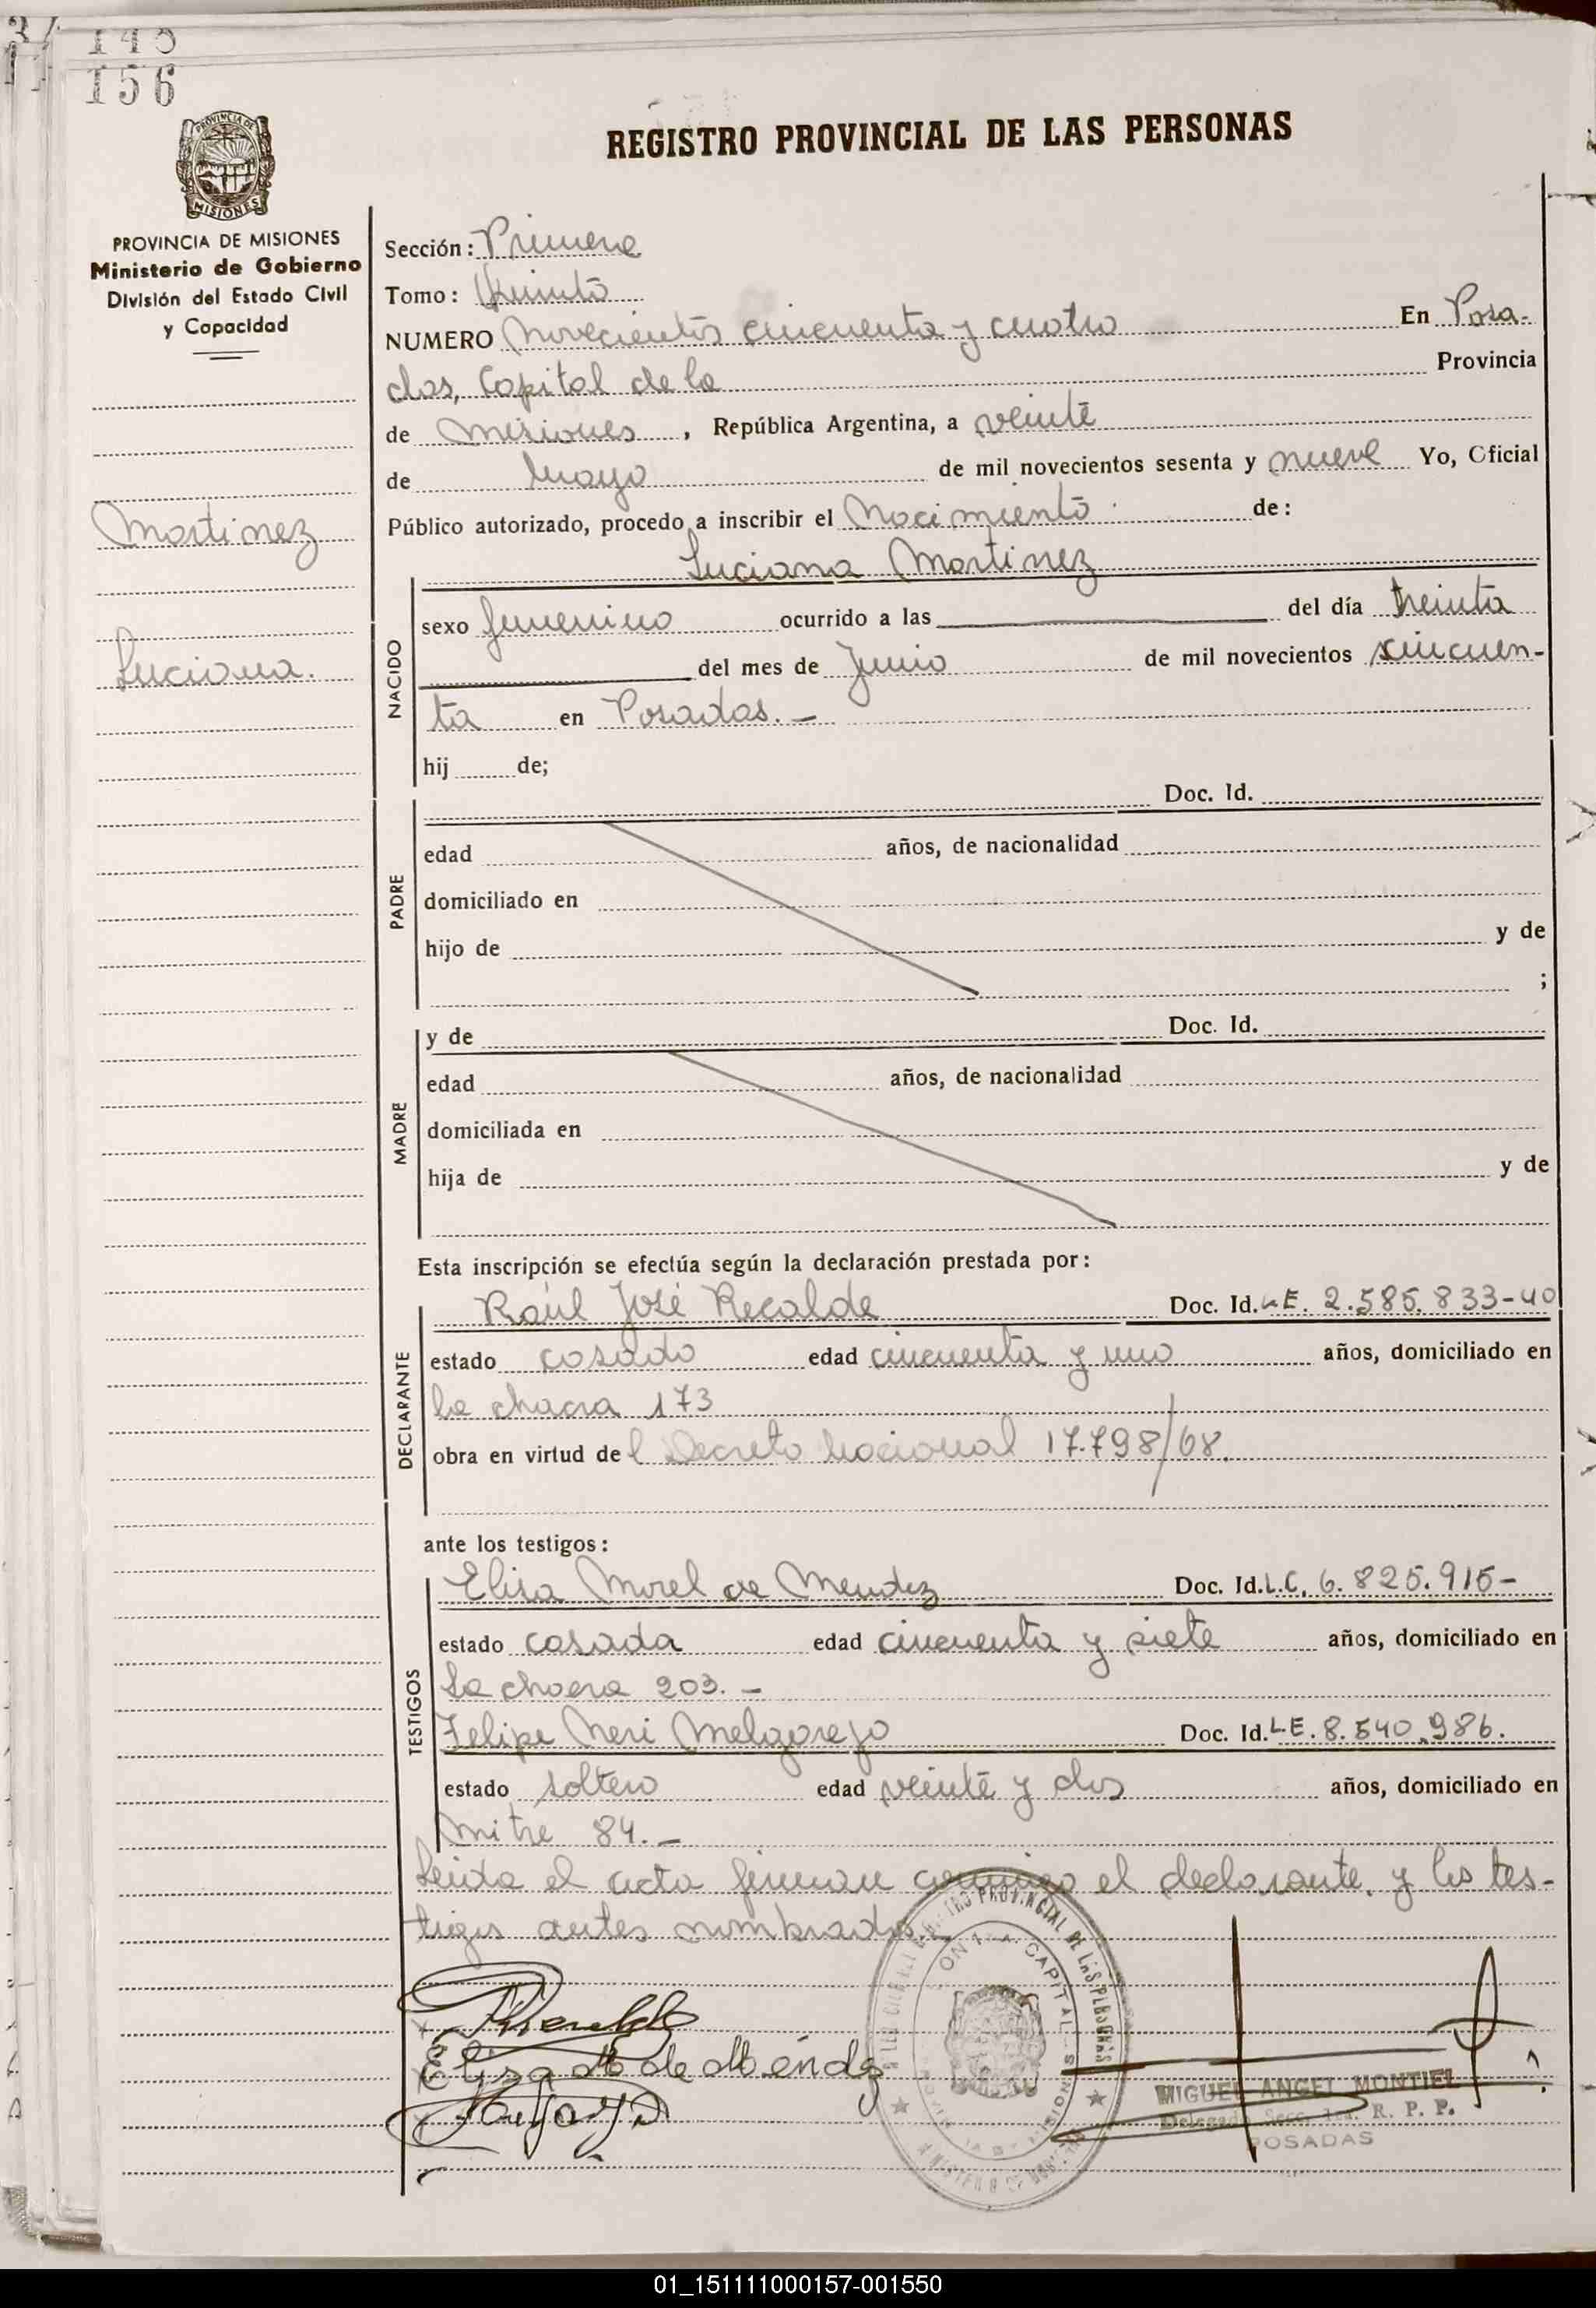 145
156
PROVINCIA DE
MISIONES
REGISTRO PROVINCIAL DE LAS PERSONAS
PROVINCIA DE MISIONES
Ministerio de Gobierno
División del Estado Civil
y Capacidad
Martinez
Luciana.
Sección: Primera
Tomo: Quinto
NUMERO Novecientos cincuenta y cuatro En Posa-
das, Capital de la Provincia
de Misiones, República Argentina, a veinte
de Mayo de mil novecientos sesenta y nueve Yo, Oficial
Público autorizado, procedo a inscribir el Nacimiento de:
Luciana Martinez
NACIDO
sexo femenino ocurrido a las del día treinta
del mes de Junio de mil novecientos cincuen-
ta en Posadas. -
hij de;
PADRE
Doc. Id.
edad años, de nacionalidad
domiciliado en
hijo de y de
;
MADRE
y de Doc. Id.
edad años, de nacionalidad
domiciliada en
hija de y de
Esta inscripción se efectúa según la declaración prestada por:
DECLARANTE
Raúl José Recalde Doc. Id. L.E. 2.585.833-40
estado casado edad cincuenta y uno años, domiciliado en
la chacra 173
obra en virtud del Decreto Nacional 17.798/68.
ante los testigos:
TESTIGOS
Elisa Morel de Mendez Doc. Id. L.C. 6.825.915-
estado casada edad cincuenta y siete años, domiciliado en
la chacra 203. -
Felipe Neri Melgarejo Doc. Id. L.E. 8.540.986.
estado soltero edad veinte y dos años, domiciliado en
Mitre 84. -
Leida el acta firman conmigo el declarante, y los tes-
tigos antes nombrados.
Elisa M de Méndez
REGISTRO PROVINCIAL DE LAS PERSONAS
CAPITAL
MISIONES
MIGUEL ANGEL MONTIEL
Delegado Secc. 1ra. R. P. P.
POSADAS
01_151111000157-001550